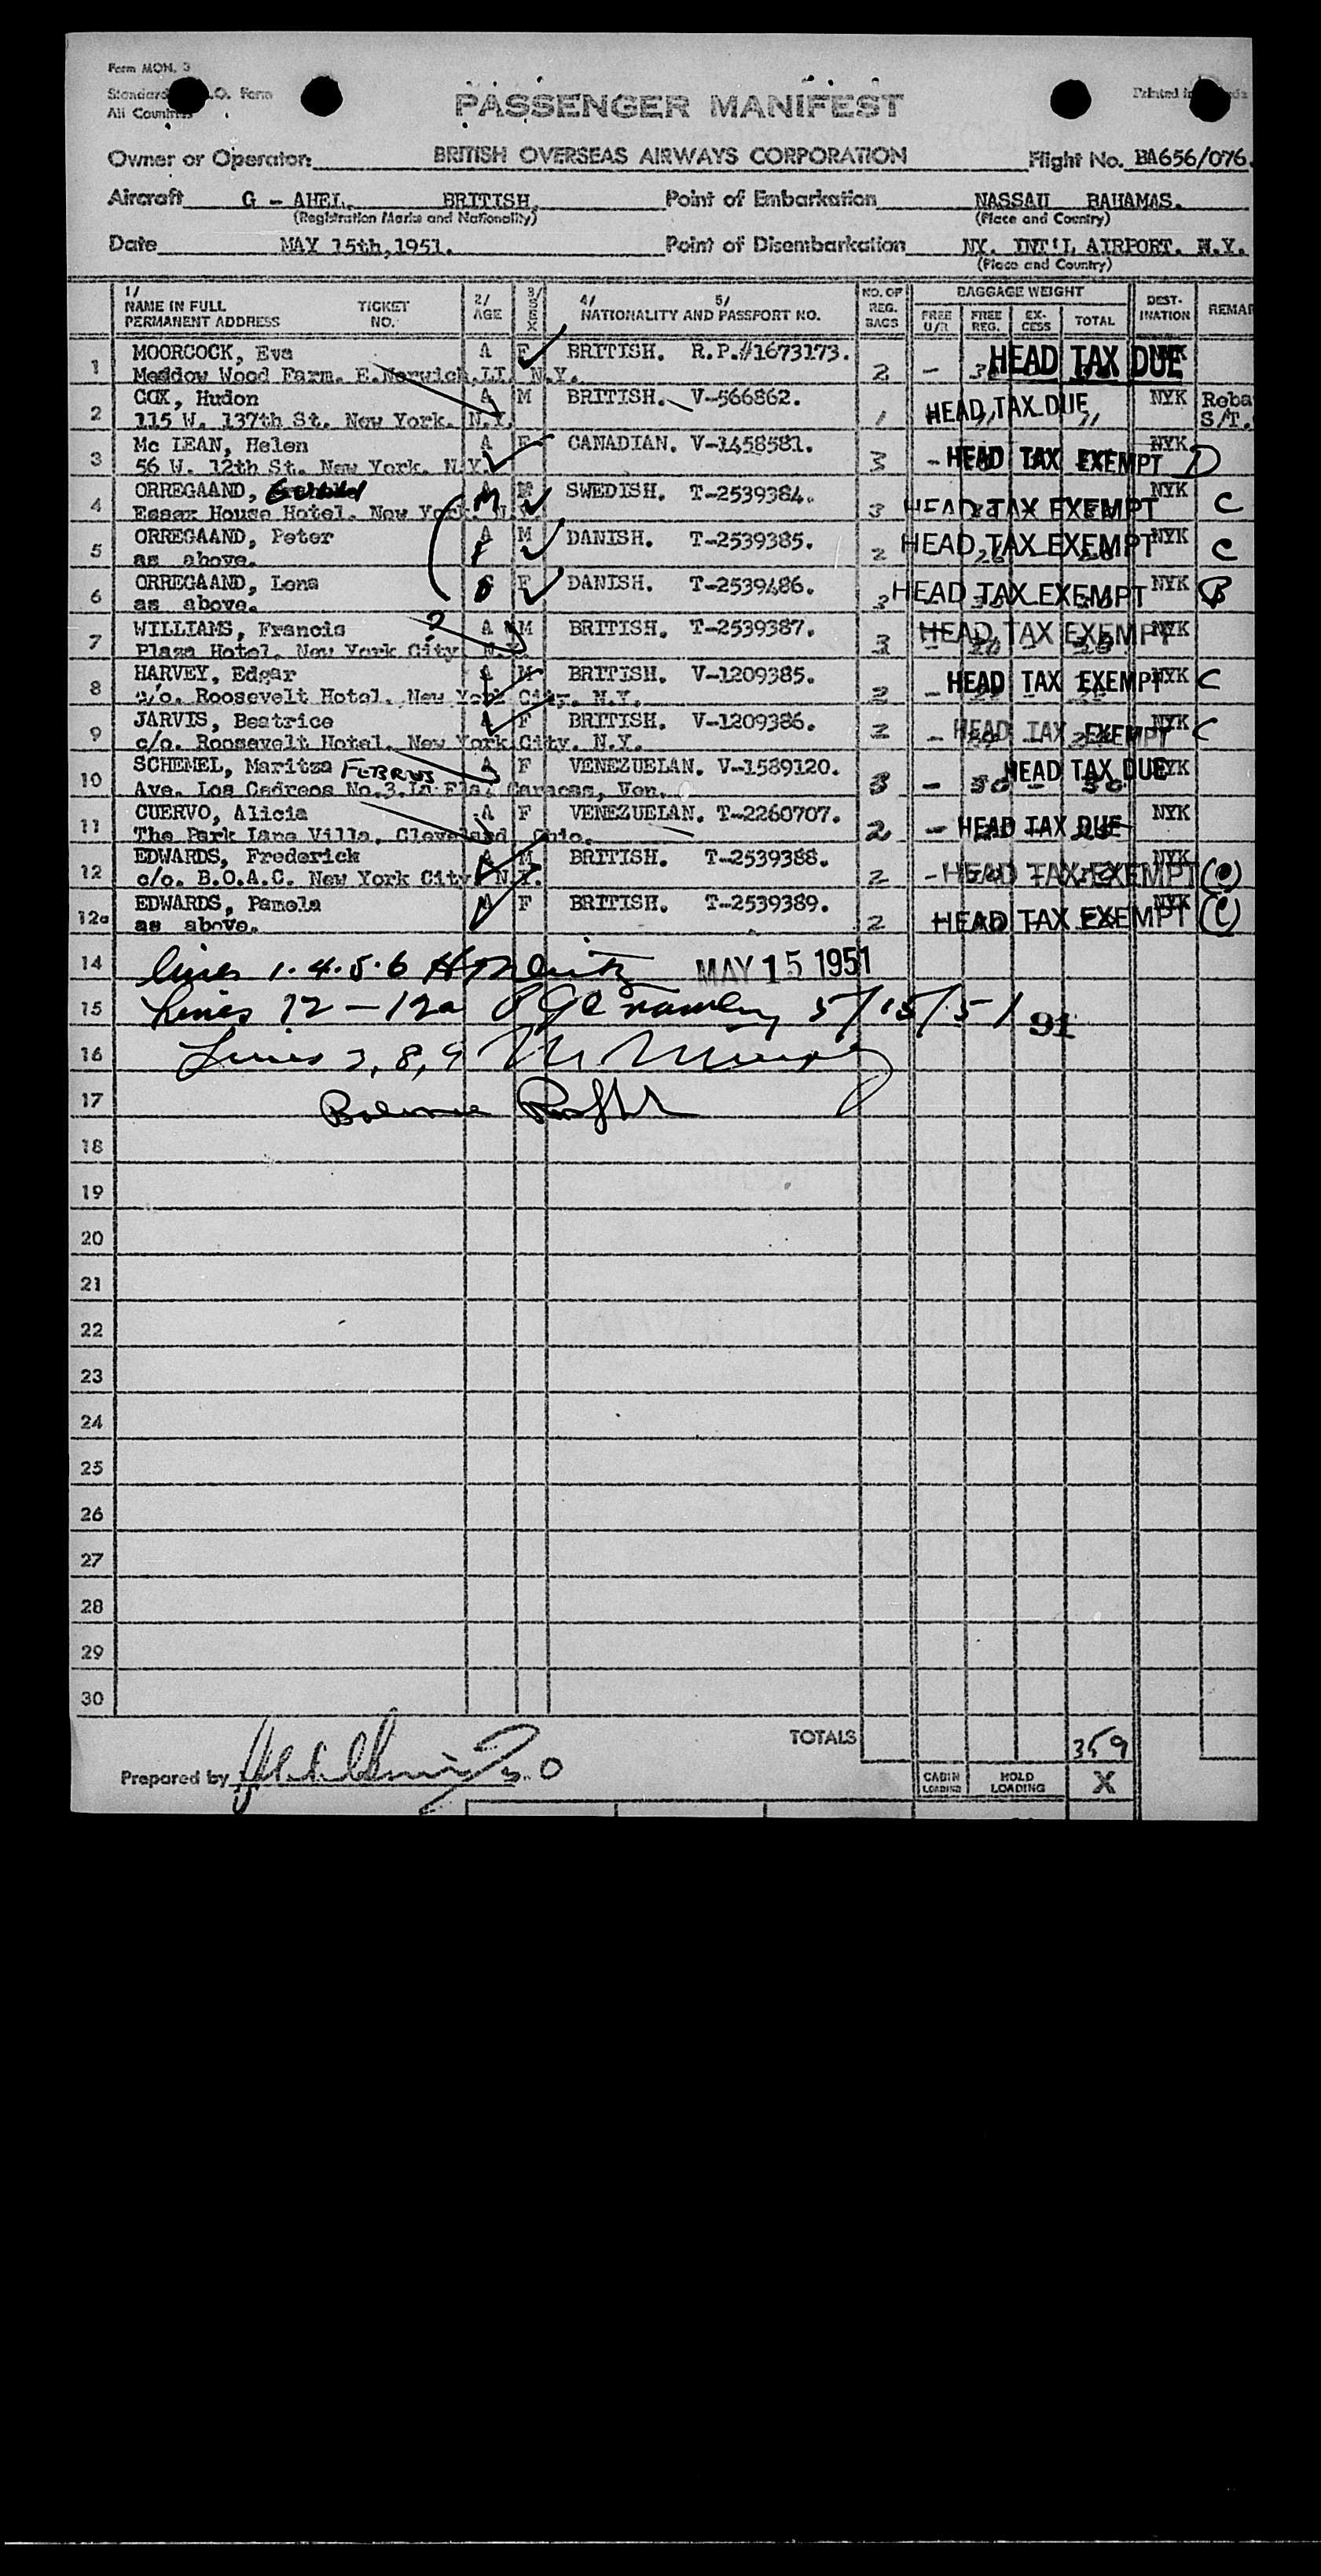 Form MON. 3
Standard I.C.A.O. Form
All Countries
Printed in
PASSENGER MANIFEST
Owner or Operator BRITISH OVERSEAS AIRWAYS CORPORATION Flight No. BA656/076.
Aircraft G - AHEL. BRITISH. Point of Embarkation NASSAU BAHAMAS.
(Registration Marks and Nationality) (Place and Country)
Date MAY 15th,1951. Point of Disembarkation NY. INT'L AIRPORT. N.Y.
(Place and Country)
1/ NAME IN FULL PERMANENT ADDRESS TICKET NO. 2/ AGE 3/ SEX 4/ 5/ NATIONALITY AND PASSPORT NO. NO. OF REG. BAGS BAGGAGE WEIGHT FREE U/R FREE REG. EX-CESS TOTAL DEST-INATION REMAR
1 MOORCOCK, Eva A F BRITISH. R.P.#1673173. 2 - HEAD TAX DUE NYK
Meddow Wood Farm. E.Norwich.LI. N.Y.
2 COX, Hudon A M BRITISH. V-566862. 1 HEAD TAX DUE 11 NYK Reba
115 W. 137th St. New York. N.Y. S/T.
3 Mc LEAN, Helen A F CANADIAN. V-1458581. 3 - HEAD TAX EXEMPT NYK D
56 W. 12th St. New York. N.Y.
4 ORREGAAND, M SWEDISH. T-2539384. 3 HEAD TAX EXEMPT NYK C
Essex House Hotel. New York. N.Y.
5 ORREGAAND, Peter A M DANISH. T-2539385. 2 HEAD TAX EXEMPT NYK C
as above. F
6 ORREGAAND, Lona F DANISH. T-2539486. 3 HEAD TAX EXEMPT NYK B
as above.
7 WILLIAMS, Francis ? A M BRITISH. T-2539387. 3 HEAD TAX EXEMPT NYK
Plaza Hotel. New York City. N.Y.
8 HARVEY, Edgar A M BRITISH. V-1209385. 2 - HEAD TAX EXEMPT NYK C
c/o. Roosevelt Hotel. New York City. N.Y.
9 JARVIS, Beatrice A F BRITISH. V-1209386. 2 - HEAD TAX EXEMPT NYK C
c/o. Roosevelt Hotel. New York City. N.Y.
10 SCHEMEL, Maritza FEBRUS A F VENEZUELAN. V-1589120. 3 - 30 - 30 HEAD TAX DUE NYK
Ave. Los Cedreos No.3.La Fla. Caracas, Ven.
11 CUERVO, Alicia A F VENEZUELAN. T-2260707. 2 - HEAD TAX DUE NYK
The Park Lane Villa, Cleveland, Ohio.
12 EDWARDS, Frederick A M BRITISH. T-2539388. 2 - HEAD TAX EXEMPT NYK (C)
c/o. B.O.A.C. New York City. N.Y.
12a EDWARDS, Pamela A F BRITISH. T-2539389. 2 HEAD TAX EXEMPT NYK (C)
as above.
14 lines 1.4.5.6 MAY 15 1951
15 Lines 12 - 12a 5/15/51 91
16 Lines 3, 8, 9
17 Balance
18
19
20
21
22
23
24
25
26
27
28
29
30
TOTALS 359
Prepared by
CABIN LOADING HOLD LOADING X